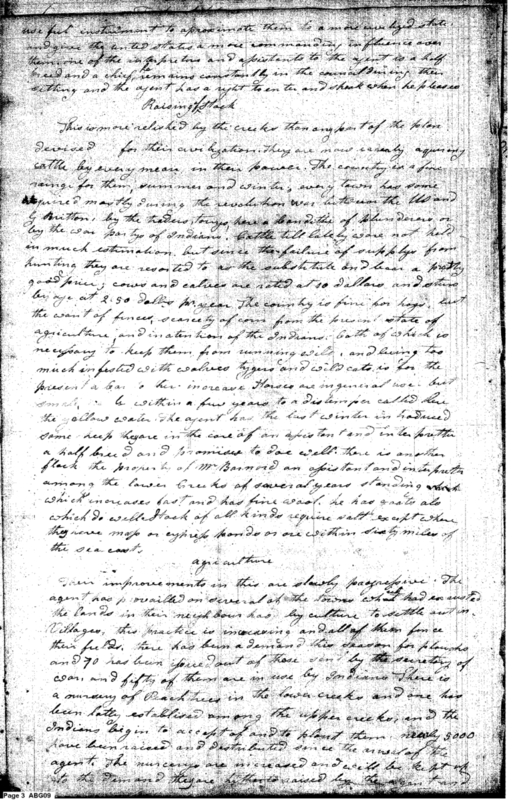 useful instrument to aproximate them to a more civilized state
and give the united states a more commanding influence over
them, one of the interpreters and assistants to the agent is a half
breed and a chief, remains constantly in the council during their
sitting and the agent has a right to enter and speak when he pleases
Raising of stock
This is more relished by the creeks than any part of the plan
devised for their civilization. They are now eagerly aquireing
cattle by every means in their power. The country is a fine
range for them, summer and winter, every town has some
aquired mostly during the revolution war between the US and
G Britton, by the traders, torys, here a banditte of plunderers, or
by the war partys of Indians. Cattle till lately were not held
in much estimation, but since the failure of supplys from
hunting they are resorted to as the substitute and bear a pretty
good price; cows and calves are rated at 10 dollars, and steers
by age at 2.50 dolls pr year. The country is fine for hogs, but
the want of fences, scarcety of corn from the present state of
agriculture, and inatention of the Indians, both of which is
necessary to keep them from running wild, and being too
much infested with wolves tygers and wild cats, is for the
present a bar to their increase Horses are in general use but
small, within a few years to a distemper called here
the yellow water. The agent has the last winter introduced
some sheep they are in the care of an assistant and interpretter
a half breed and promises to doe well there is another
flock the property of Mr Barnard an assistant and interpretter
among the lower Creeks of several years standing which
which increases fast and has fine wool. he has goats also
which do well. Stock of all kinds require salt except where
they have moss or cypress ponds or are within sixty miles of
the sea coast.
agriculture
Their improvements in this are slowly progressive. The
agent has prevailled on several of the towns which had exausted
the lands in their neighbourhood by culture to settle out in
Villages, this practice is increasing and all of them fence
their fields. there has been a demand this season for ploughs
and 70 has been issued out of those sent by the secretary of
war, and fifty of them are in use by Indians There is
a nursery of Peach trees in the lower creeks and one has
been latly establised among the upper creeks, and the
Indians begin to accept of and to plant them. nearly 5000
have been raised and distributed since the arrival of the
agent. The nurserys are increased and will be kept up
to the demand they are hitherto raised by the agent and
Page 3 ABG09